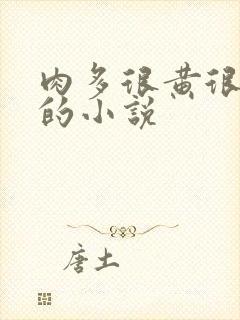 肉多很黄很
的小说
唐土